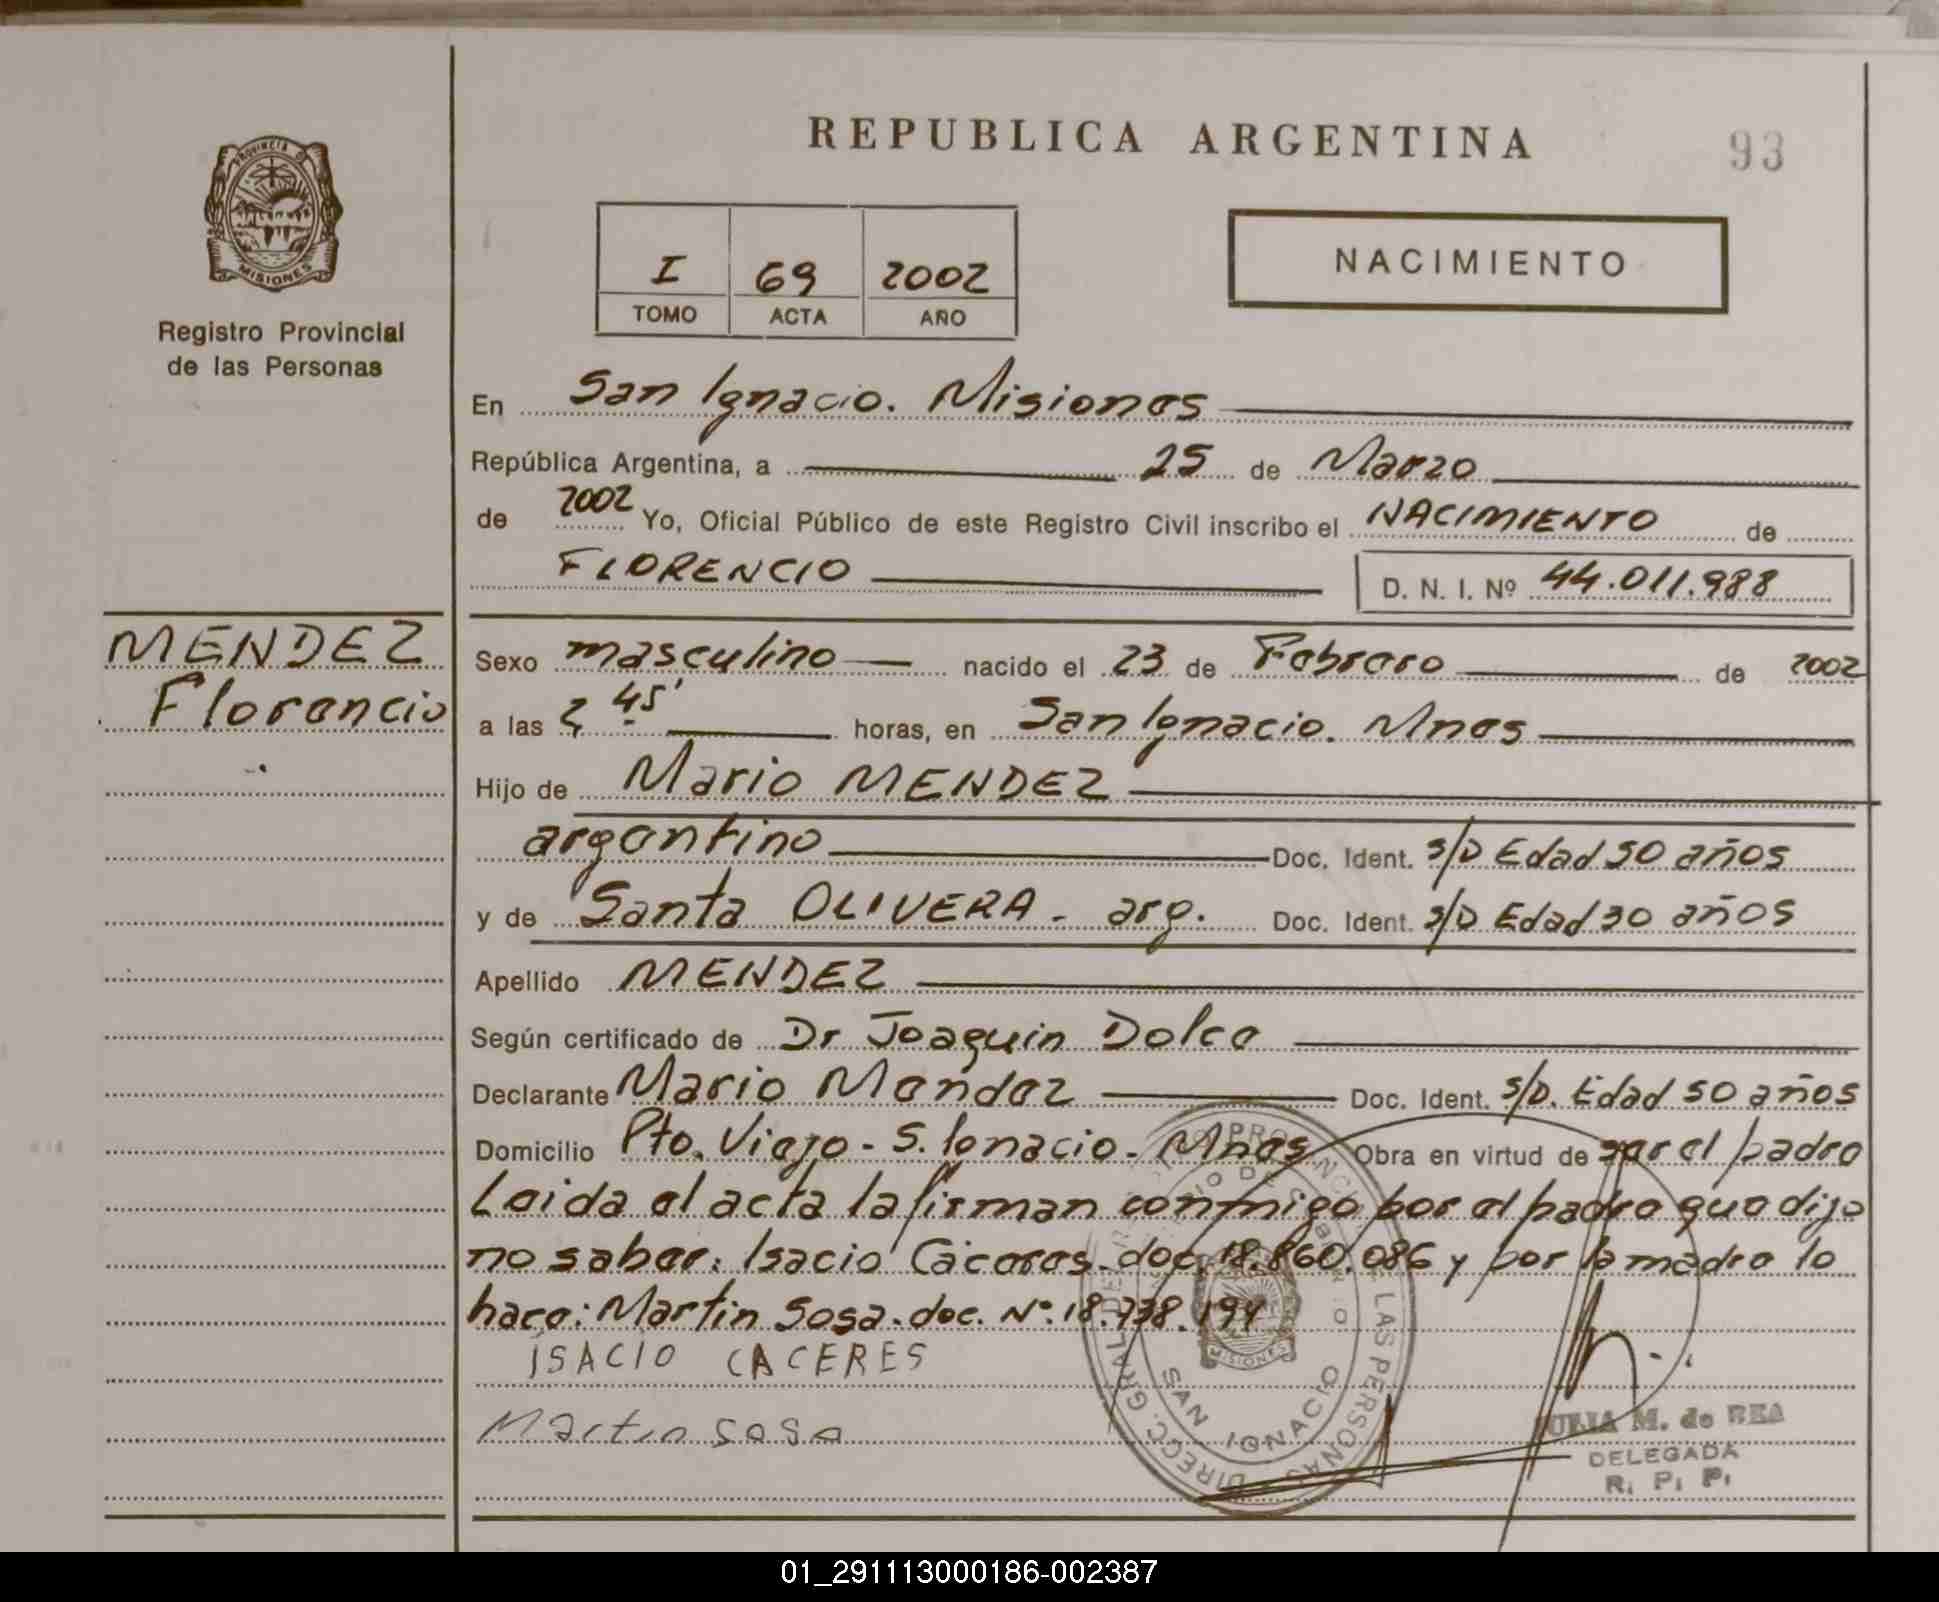 REPUBLICA ARGENTINA
93
PROVINCIA DE
MISIONES
Registro Provincial
de las Personas
I 69 2002
TOMO ACTA AÑO
NACIMIENTO
En San Ignacio. Misiones
República Argentina, a 25 de Marzo
de 2002 Yo, Oficial Público de este Registro Civil inscribo el NACIMIENTO de
FLORENCIO D. N. I. Nº 44.011.988
MENDEZ
Florencio
Sexo masculino nacido el 23 de Febrero de 2002
a las 2 45' horas, en San Ignacio. Mnes
Hijo de Mario MENDEZ
argentino Doc. Ident. s/D Edad 50 años
y de Santa OLIVERA - arg. Doc. Ident. s/D Edad 30 años
Apellido MENDEZ
Según certificado de Dr Joaquin Dolce
Declarante Mario Mendez Doc. Ident. s/D. Edad 50 años
Domicilio Pto. Viejo - S. Ignacio - Mnes Obra en virtud de ser el padre
Leida el acta la firman conmigo por el padre que dijo
no saber: Isacio Cáceres. doc. 18.860.086 y por la madre lo
hace: Martin Sosa. doc. Nº: 18.738.194
ISACIO CACERES
Martin Sosa
SAN IGNACIO
MISIONES
JULIA M. de REA
DELEGADA
R. P. P.
01_291113000186-002387